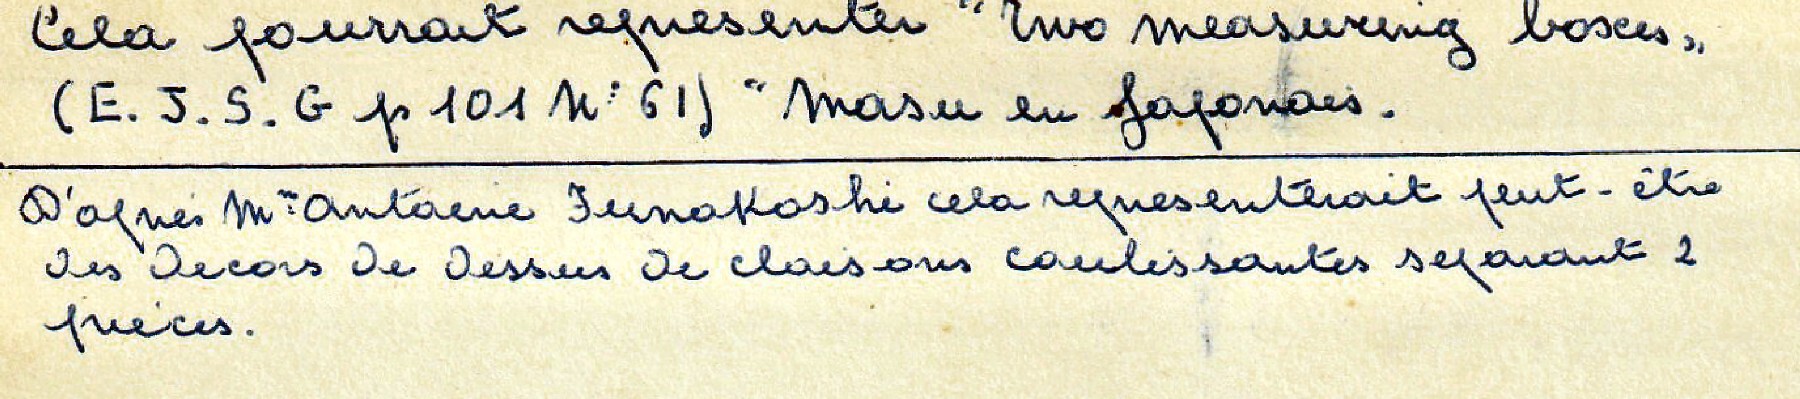 Cela pourrait representer "Two measuring boxes"
(E. J. S. G p 101 N° 61) "Masu en Japonais.
D'après Mme Antoine Funakoshi cela representerait peut-être
des decors de dessus de cloisons coulissantes separant 2
pièces.